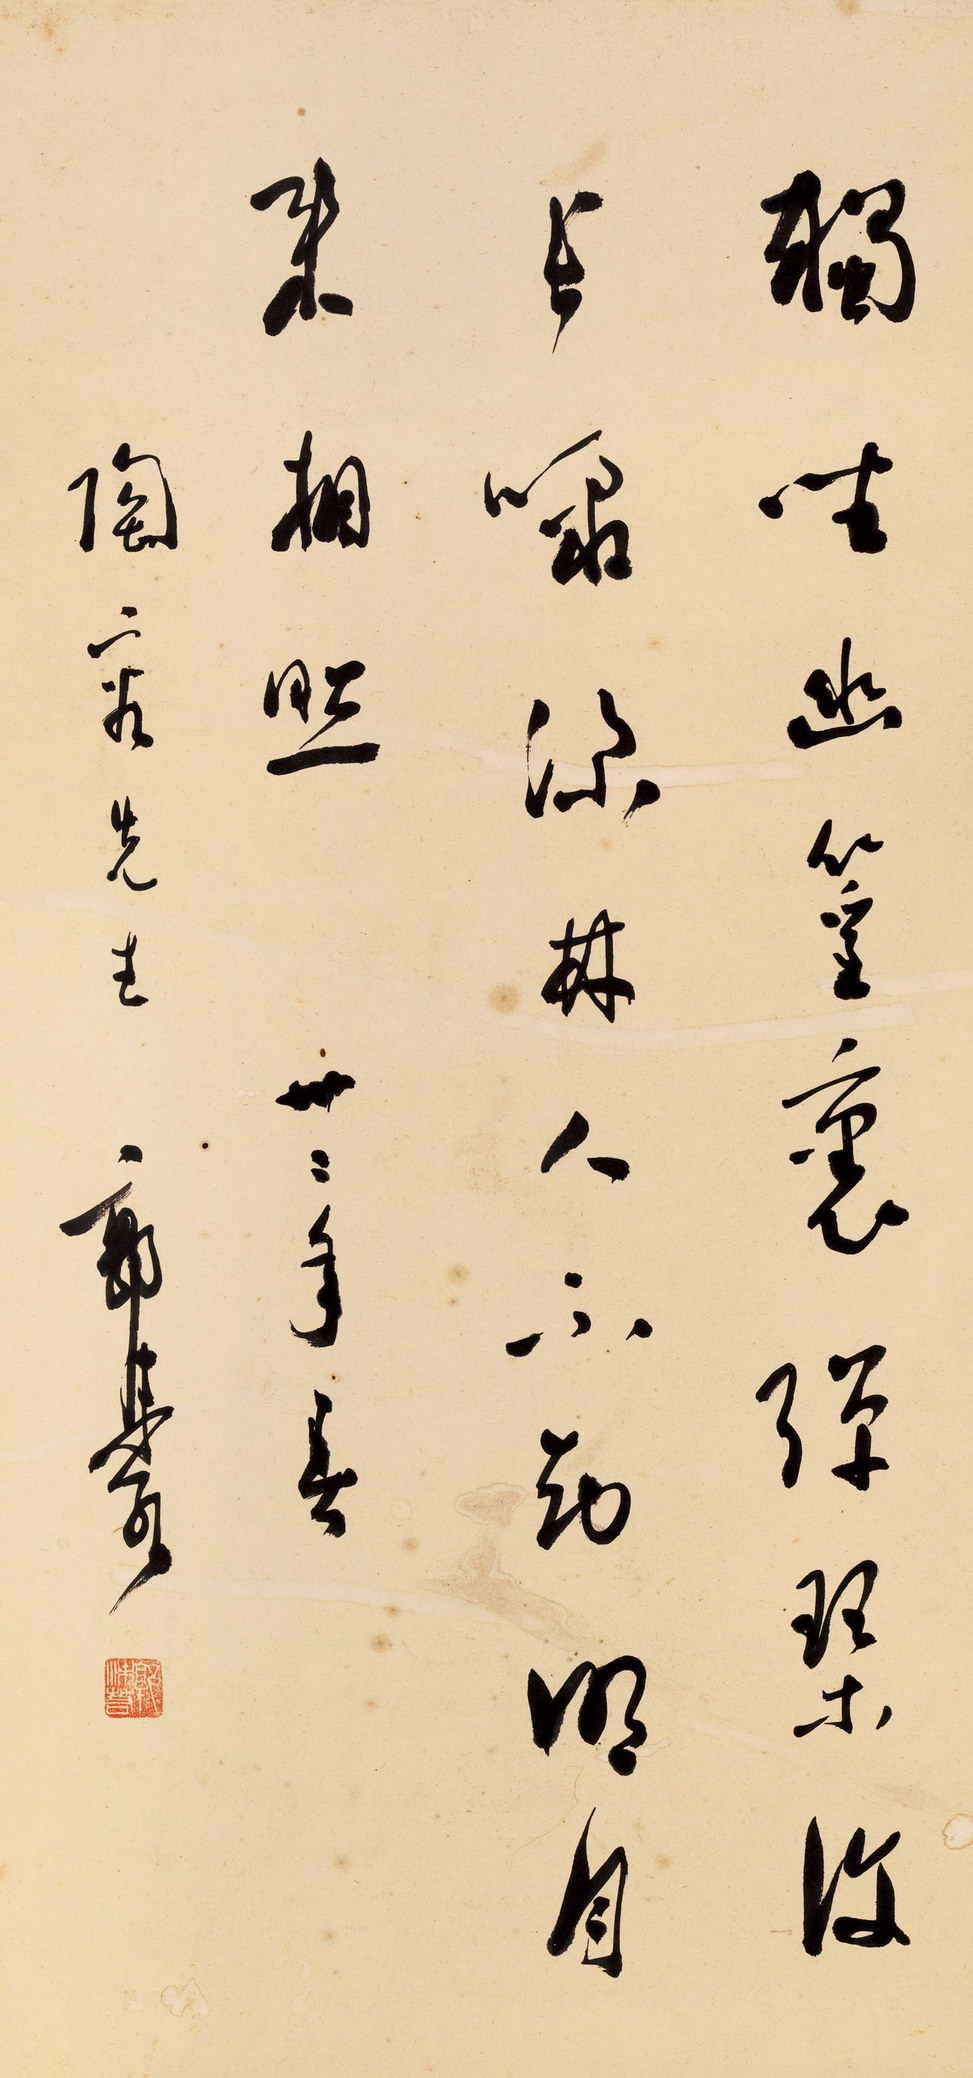 獨坐幽篁裏彈琴復
長嘯深林人不知明月
來相照 卅二年春
陶客先生 郭沫若
郭沫若